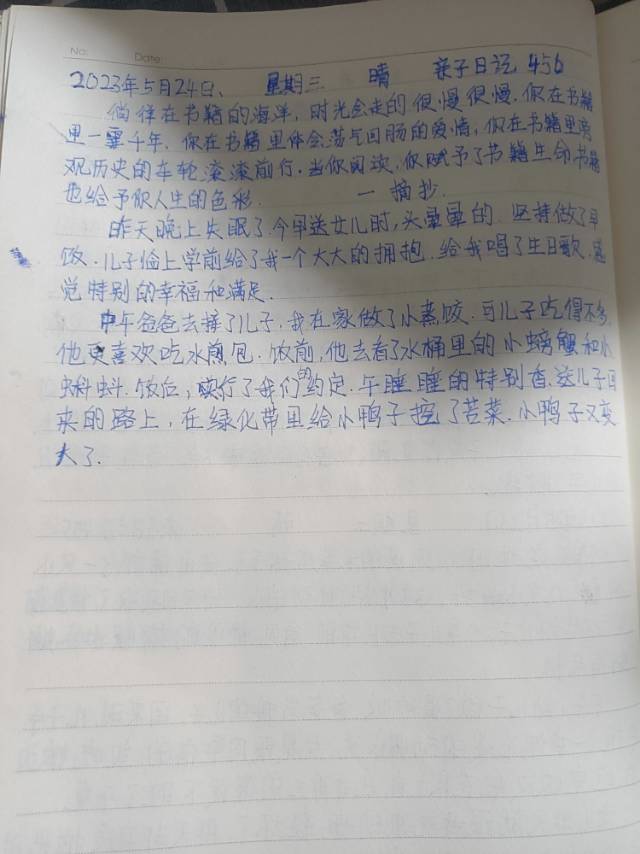 No: Date:
2023年5月24日、 星期三 晴 亲子日记 456
徜徉在书籍的海洋,时光会走的很慢很慢.你在书籍
里一霎千年.你在书籍里体会荡气回肠的爱情,你在书籍里旁
观历史的车轮滚滚前行.当你阅读,你赋予了书籍生命.书籍
也给予你人生的色彩. 一摘抄.
昨天晚上失眠了.今早送女儿时,头晕晕的.坚持做了早
饭.儿子临上学前给了我一个大大的拥抱.给我唱了生日歌,感
觉特别的幸福和满足.
中午爸爸去接了儿子,我在家做了小蒸饺.可儿子吃得不多
他更喜欢吃水煎包.饭前,他去看了水桶里的小螃蟹和小
蝌蚪.饭后,履行了我们的约定.午睡睡的特别香.送儿子回
来的路上,在绿化带里给小鸭子挖了苦菜.小鸭子又变
大了.